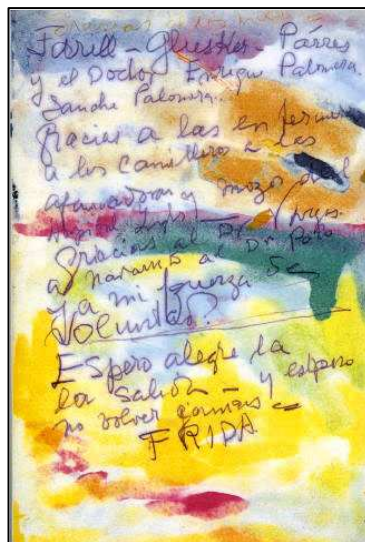 Farill - Glusker - Párres
y el Doctor Enrique Palomera.
Sanche Palomera.
Gracias a las enfermeras
a los Camilleros a las
afanadoras y mozos del
Gracias al Dr
a mi fuerza de
Voluntad.
Espero alegre la
la salida - y espero
no volver jamas -
FRIDA